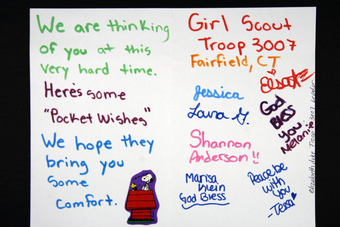 We are thinking
of you at this
very hard time.
Here's some
"Pocket Wishes"
We hope they
bring you
some
comfort.
Girl Scout
Troop 3007
Fairfield, CT
Jessica
Laura G.
Shannon
Anderson!!
Marisa
Klein
God Bless
God
Bless
You
Melanie
Peace be
with
you
-Tessa